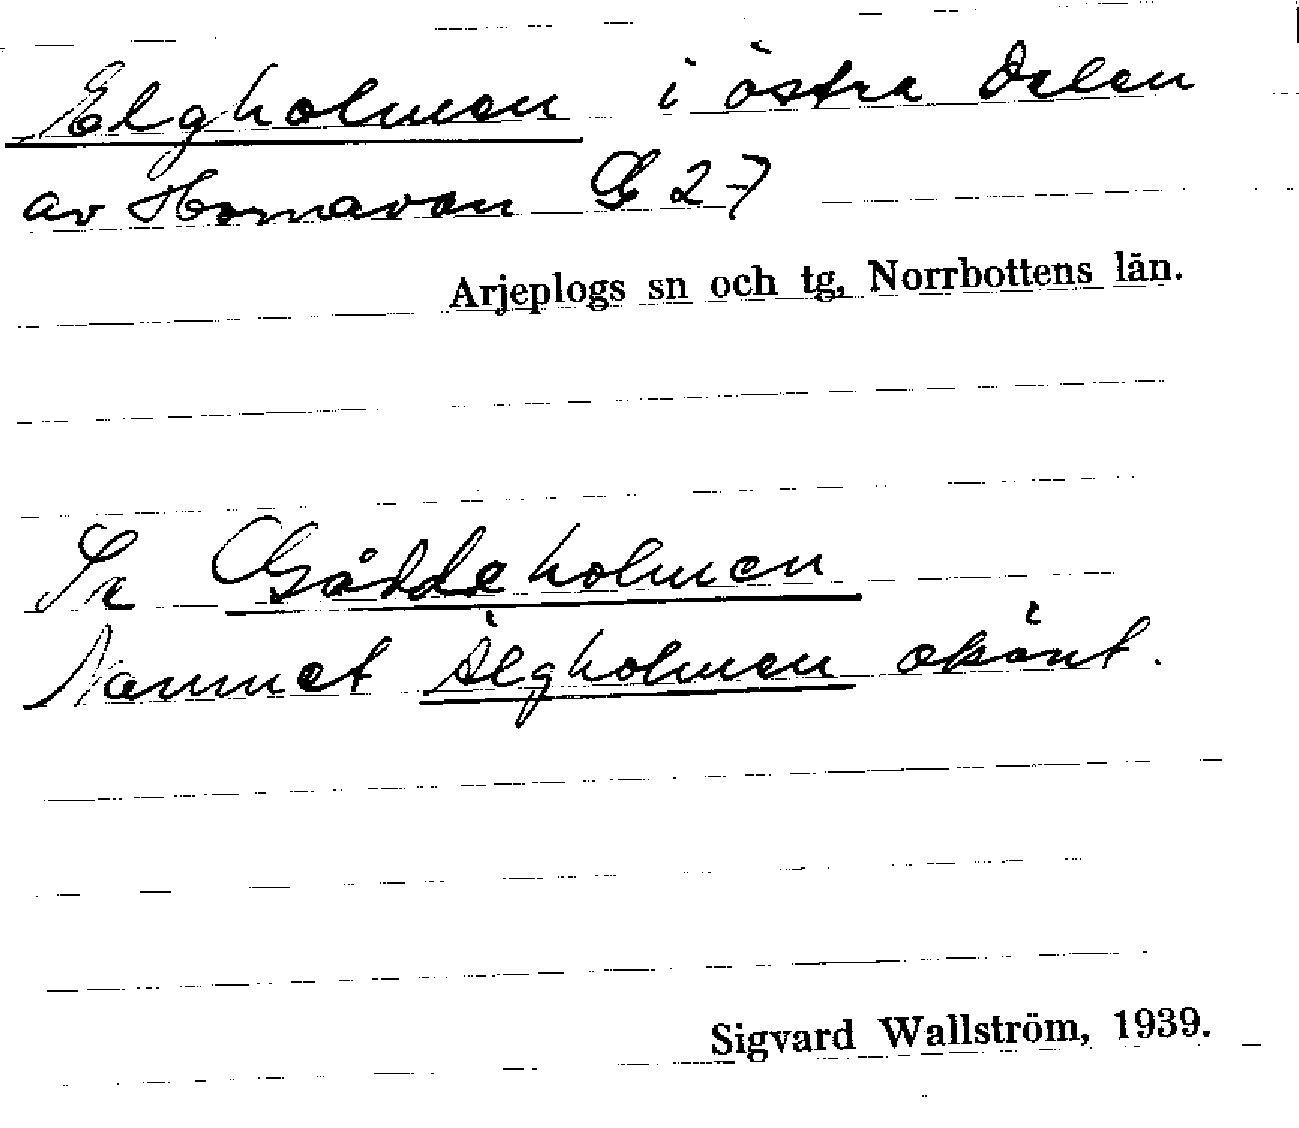 Elgholmen i östra delen
av Hornavan G 27
Arjeplogs sn och tg, Norrbottens län.
Se Gäddeholmen
Namnet Älgholmen okänt.
Sigvard Wallström, 1939.